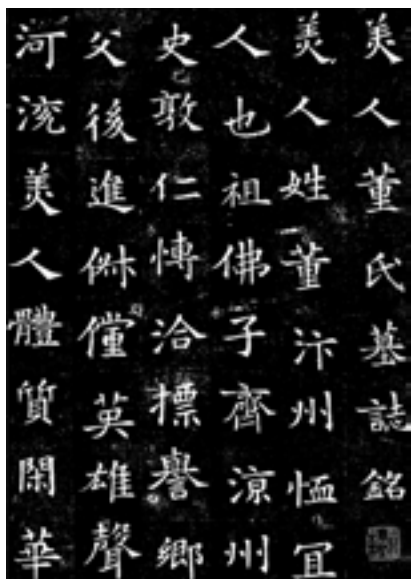 美人董氏墓誌銘
美人姓董汴州恤冝
人也祖佛子齊涼州
史敦仁愽洽摽譽鄉
父後進俶儻英雄聲
河渷美人體質閑華